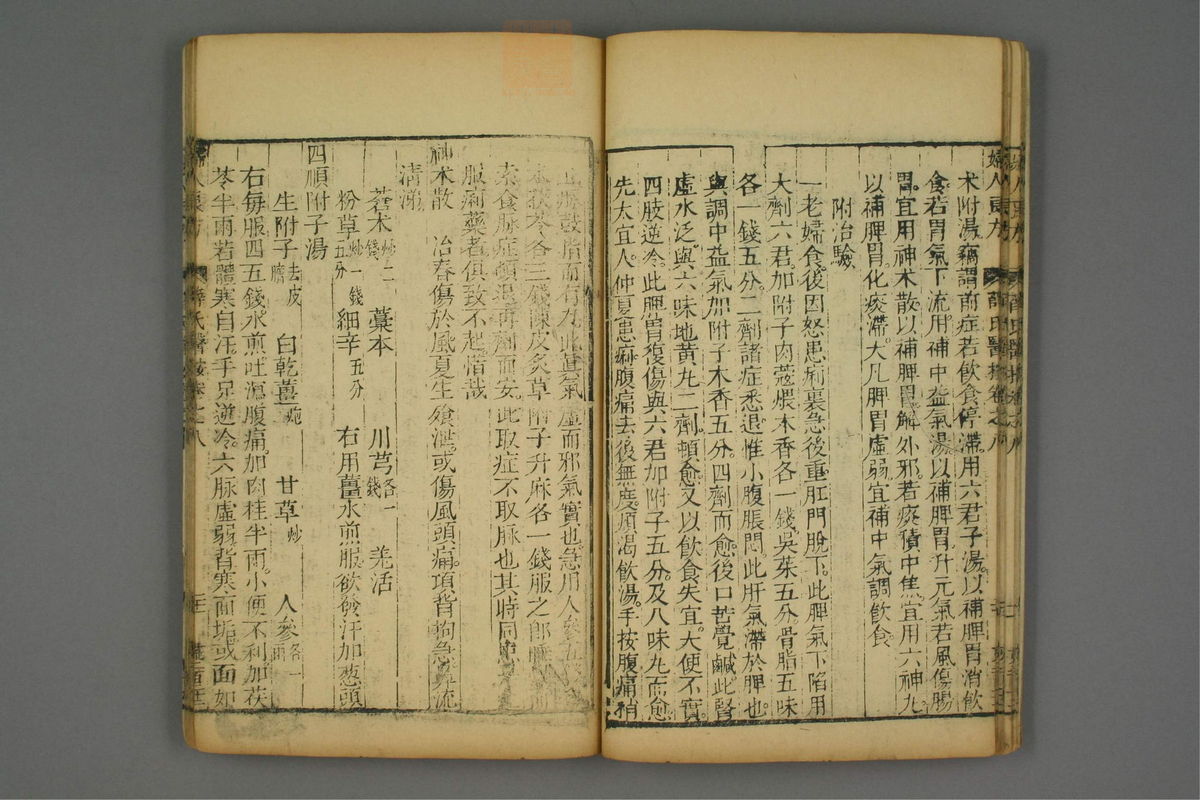 朮附湯竊謂前症若飲食停滯用六君子湯以補脾胃消飲
食若胃氣下流用補中益氣湯以補脾胃升元氣若風傷腸
胃宜用神朮散以補脾胃解外邪若痰積中焦宜用六神丸
以補脾胃化痰滯大凡脾胃虛弱宜補中氣調飲食
附治驗
一老婦食後因怒患痢裏急後重肛門脫下此脾氣下陷用
大劑六君加附子肉蔻煨木香各一錢吳茱五分骨脂五味
各一錢五分二劑諸症悉退惟小腹脹悶此肝氣滯於脾也
與調中益氣加附子木香五分四劑而愈後口苦覺鹹此腎
虛水泛與六味地黃丸二劑頓愈又以飲食失宜大便不實
四肢逆冷此脾胃復傷與六君加附子五分及八味丸而愈
先太宜人仲夏患痳腹痛去後無度煩渴飲湯手按腹痛稍
虛而邪氣實也急用人參五錢
茯苓各三錢陳皮炙草附子升麻各一錢服之
索食脉症頓退再劑而安此取症不取脉也其時同
服痢藥者俱致不起惜哉
神朮散 冶春傷於風夏生飱泄或傷風頭痛項背拘急鼻流
清涕
蒼朮炒二錢 藁本 川芎各一錢 羌活
粉草炒一錢五分 細辛五分 右用薑水煎服欲發汗加葱頭
四順附子湯
生附子去皮臍 白乾薑炮 甘草炒 人參各一兩
右每服四五錢水煎吐瀉腹痛加肉桂半兩小便不利加茯
苓半兩若體寒自汗手足逆冷六脉虛弱背寒面垢或面如